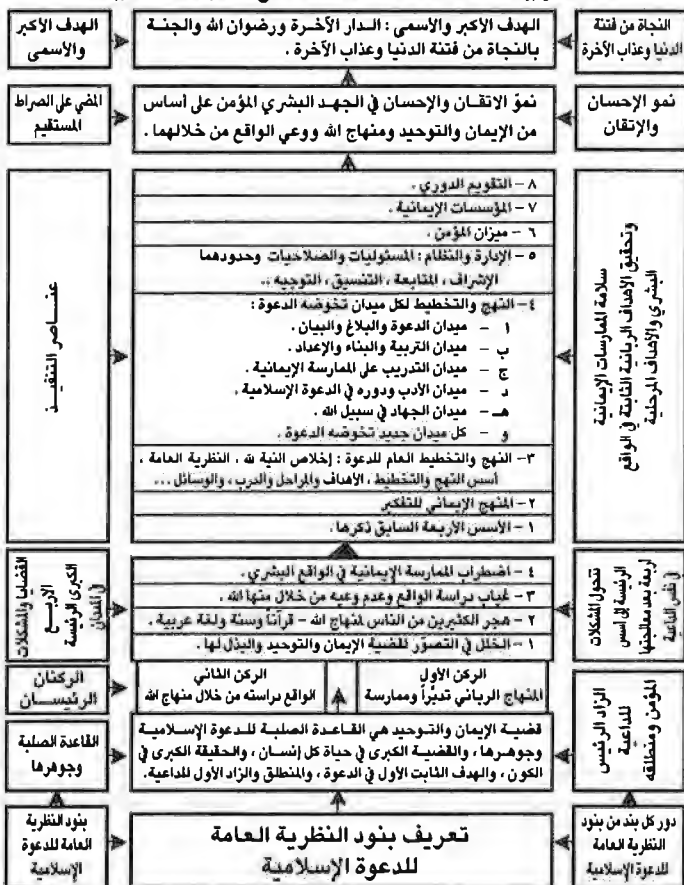 النجاة من فتنة
الدنيا وعذاب الآخرة
الهدف الأكبر والأسمى : الدار الآخرة ورضوان الله والجنة
بالنجاة من فتنة الدنيا وعذاب الآخرة .
الهدف الأكبر
والأسمى
نمو الإحسان
والإتقان
نموّ الاتقان والإحسان في الجهد البشري المؤمن على أساس
من الإيمان والتوحيد ومنهاج الله ووعي الواقع من خلالهما .
المضي على الصراط
المستقيم
سلامة الممارسات الإيمانية
وتحقيق الأهداف الربانية الثابتة في الواقع
البشري والأهداف المرحلية
٨ – التقويم الدوري .
٧ – المؤسسات الإيمانية .
٦ – ميزان المؤمن .
٥ – الإدارة والنظام : المسئوليات والصلاحيات وحدودهما
الإشراف ، المتابعة ، التنسيق ، التوجيه ..
٤ – النهج والتخطيط لكل ميدان تخوضه الدعوة :
أ – ميدان الدعوة والبلاغ والبيان .
ب – ميدان التربية والبناء والإعداد .
ج – ميدان التدريب على الممارسة الإيمانية .
د – ميدان الأدب ودوره في الدعوة الإسلامية .
هـ – ميدان الجهاد في سبيل الله .
و – كل ميدان جديد تخوضه الدعوة .
٣– النهج والتخطيط العام للدعوة : إخلاص النية لله ، النظرية العامة ،
أسس النهج والتخطيط ، الأهداف والمراحل والدرب ، والوسائل ...
٢– المنهج الإيماني للتفكير
١ – الأسس الأربعة السابق ذكرها .
عناصر التنفيذ
تتحول المشكلات
الرئيسة إلى أسس
أربعة بعد معالجتها
في نفس الداعية
٤ – اضطراب الممارسة الإيمانية في الواقع البشري .
٣ – غياب دراسة الواقع وعدم وعيه من خلال منهاج الله .
٢ – هجر الكثيرين من الناس لمنهاج الله – قرآناً وسنة ولغة عربية .
١ – الخلل في التصوّر لقضية الإيمان والتوحيد والبذل لها .
القضايا والمشكلات
الكبرى الرئيسة
الأربع
في الميدان
الركن الأول
المنهاج الرباني تدبّراً وممارسة
الركن الثاني
الواقع دراسته من خلال منهاج الله
الركنان
الرئيسان
الزاد الرئيس
للداعية
المؤمن ومنطلقه
قضية الإيمان والتوحيد هي القاعدة الصلبة للدعوة الإسلامية
وجوهرها ، والقضية الكبرى في حياة كل إنسان ، والحقيقة الكبرى في
الكون ، والهدف الثابت الأول في الدعوة ، والمنطلق والزاد الأول للداعية.
القاعدة الصلبة
وجوهرها
دور كل بند من بنود
النظرية العامة
للدعوة الإسلامية
تعريف بنود النظرية العامة
للدعوة الإسلامية
بنود النظرية
العامة للدعوة
الإسلامية